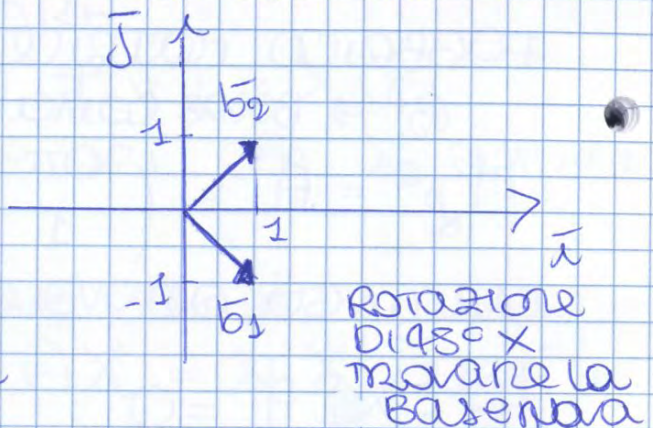 j̅
b̅2
1
1
i̅
-1
b̅1
ROTAZIONE
DI 45° X
TROVARE LA
BASE NUOVA